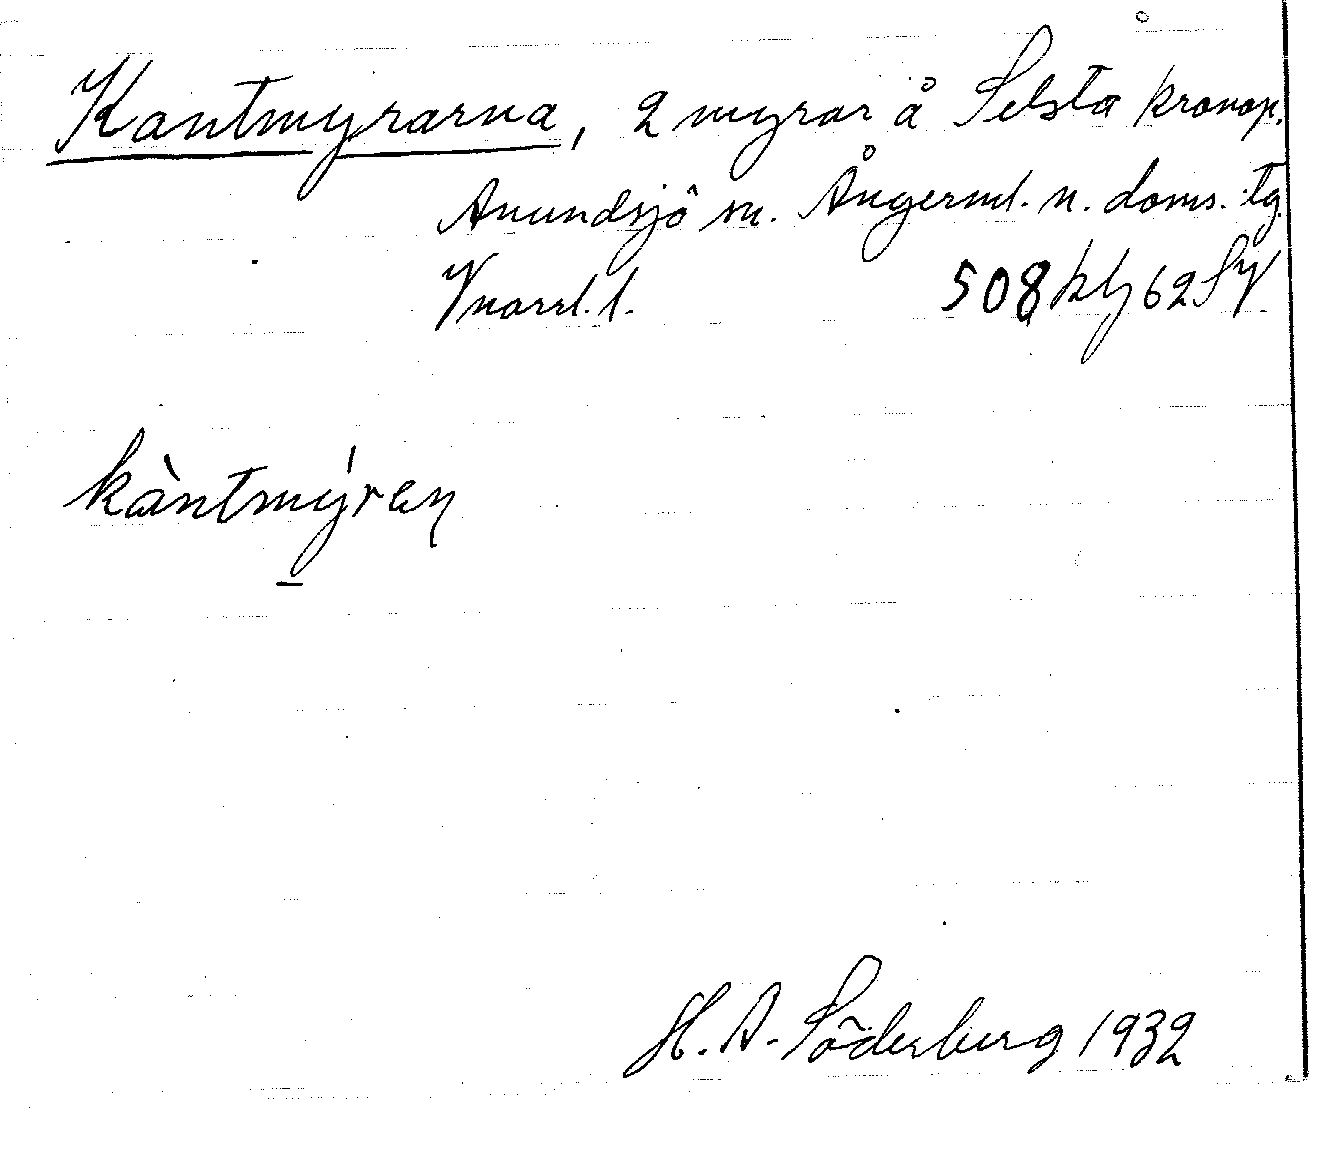 Kantmyrarna, 2 myrar å Selsta kronop.
Anundsjö sn. Ångerml. n. doms. tg.
Vnorrl. l. 508 kbz 62 SV
kàntmýren
H. A. Söderberg 1932